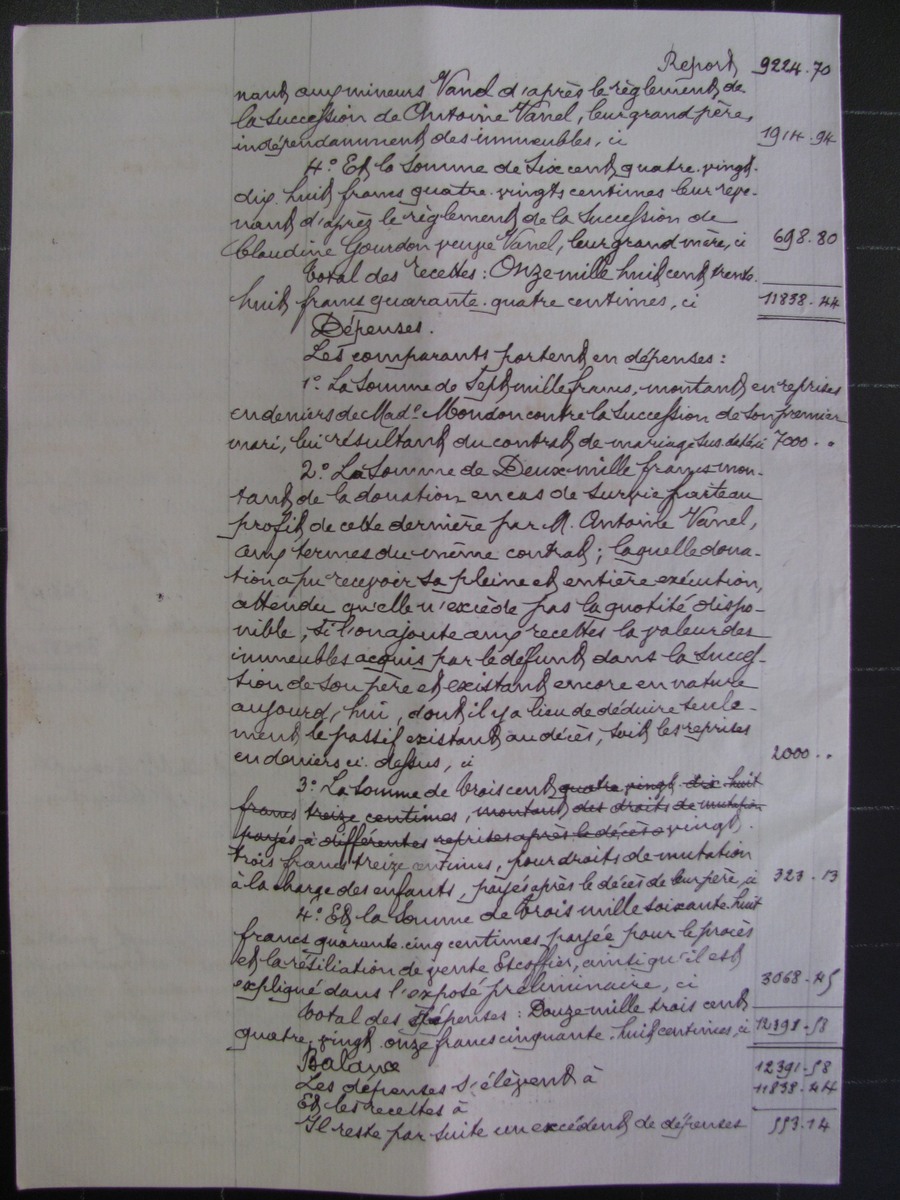 Report 9224.70
nant aux mineurs Vanel d'après le règlement de
la succession de Antoine Vanel, leur grand père,
indépendamment des immeubles, ci 1914.94
4° Et la somme de Six cent quatre-vingt-
dix-huit francs quatre-vingts centimes leur reve-
nant d'après le règlement de la succession de
Claudine Gourdon veuve Vanel, leur grand mère, ci 698.80
Total des recettes : Onze mille huit cent trente-
huit francs quarante-quatre centimes, ci 11838.44
Dépenses.
Les comparants portent en dépenses :
1° La Somme de Sept mille francs, montant en reprises
en deniers de Made Mondon contre la succession de son premier
mari, lui résultant du contrat de mariage sus daté, ci 7000..
2° La Somme de Deux mille francs mon-
tant de la donation en cas de survie faite au
profit de cette dernière par M. Antoine Vanel,
aux termes du même contrat ; laquelle dona-
tion a pu recevoir sa pleine et entière exécution,
attendu qu'elle n'excède pas la quotité dispo-
nible, si l'on ajoute aux recettes la valeur des
immeubles acquis par le défunt dans la succes-
tion de son père et existant encore en nature
aujourd'hui, dont il y a lieu de déduire seule-
ment le passif existant au décès, soit les reprises
en deniers ci-dessus, ci 2000..
3° La Somme de Trois cent quatre vingt dix huit
francs treize centimes, montant des droits de mutation
payés à différentes reprises après le décès vingt-
trois francs treize centimes, pour droits de mutation
à la charge des enfants, payés après le décès de leur père, ci 323.13
4° Et la Somme de Trois mille soixante-huit
francs quarante-cinq centimes payée pour le procès
et la résiliation de vente Escoffier, ainsi qu'il est
expliqué dans l'exposé préliminaire, ci 3068.45
Total des dépenses : Douze mille trois cent
quatre-vingt-onze francs cinquante-huit centimes, ci 12391.58
Balance
Les dépenses s'élèvent à 12391.58
Et les recettes à 11838.44
Il reste par suite un excédent de dépenses 553.14